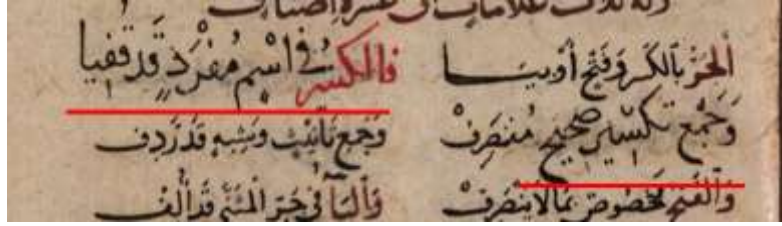 وله ثلاث علامات
الجر بالكسر وفتح أو بيا فالكسر في اسم مفرد قد قفيا
وجمع تكسير صحيح منصرف وجمع تأنيث وشبه قد ردف
والفتح مخصوص بما لا ينصرف واليا في جر المثنى قد ألف